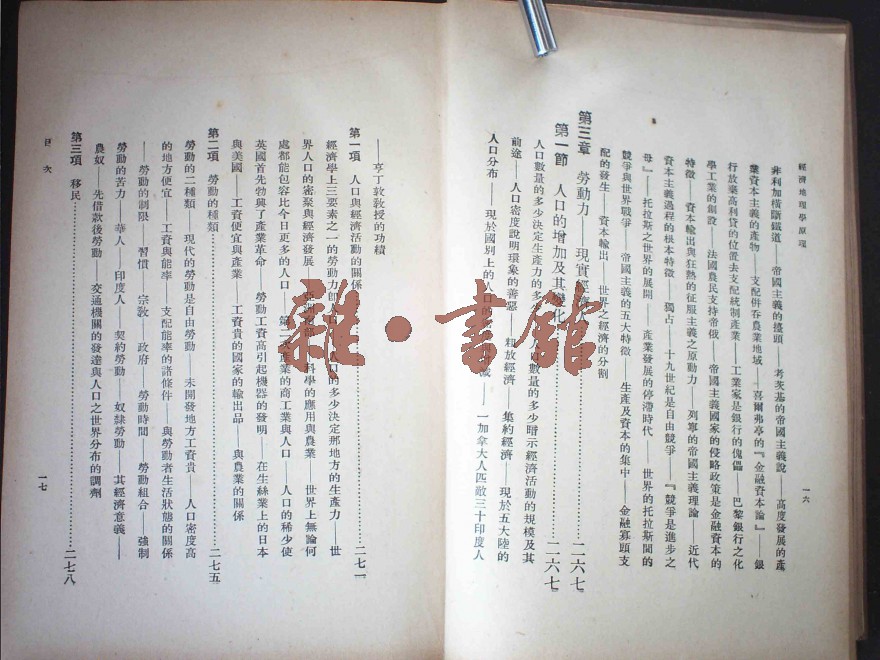 經濟地理學原理
一六
非利加橫斷鐵道——帝國主義的擡頭——考茨基的帝國主義說——高度發展的產
業資本主義的產物——支配併吞農業地域——喜爾弗亭的『金融資本論』——銀
行放棄高利貸的位置去支配統制產業——工業家是銀行的傀儡——巴黎銀行之化
學工業的創設——法國農民支持帝俄——帝國主義國家的侵略政策是金融資本的
特徵——資本輸出與狂熱的征服主義之原動力——列寧的帝國主義理論——近代
資本主義過程的根本特徵——獨占——十九世紀是自由競爭——『競爭是進步之
母』——托拉斯之世界的展開——產業發展的停滯時代——世界的托拉斯間的
競爭與世界戰爭——帝國主義的五大特徵——生產及資本的集中——金融寡頭支
配的發生——資本輸出——世界之經濟的分割
第三章 勞動力——現實經濟 二六七
第一節 人口的增加及其變化 二六七
人口數量的多少決定生產力的多 數量的多少暗示經濟活動的規模及其
前途——人口密度說明環象的善惡——粗放經濟——集約經濟——現於五大陸的
人口分布——現於國別上的人口的 減——一加拿大人匹敵三十印度人
——亨丁敦教授的功績
第一項 人口與經濟活動的關係 二七一
經濟學上三要素之一的勞動力即 口的多少決定那地方的生產力——世
界人口的密聚與經濟發展 科學的應用與農業——世界上無論何
處都能包容比今日更多的人口——第二次產業的商工業與人口——人口的稀少使
英國首先勃興了產業革命——勞動工資高引起機器的發明——在生絲業上的日本
與美國——工資便宜與產業——工資貴的國家的輸出品——與農業的關係
第二項 勞動的種類 二七五
勞動的二種類——現代的勞動是自由勞動——未開發地方工資貴——人口密度高
的地方便宜——工資與能率——支配能率的諸條件——與勞動者生活狀態的關係
——勞動的制限——習慣——宗教——政府——勞動時間——勞動組合——強制
勞動的苦力——華人——印度人——契約勞動——奴隸勞動——其經濟意義——
農奴——先借款後勞動——交通機關的發達與人口之世界分布的調劑
第三項 移民 二七八
目次
一七
雜·書館